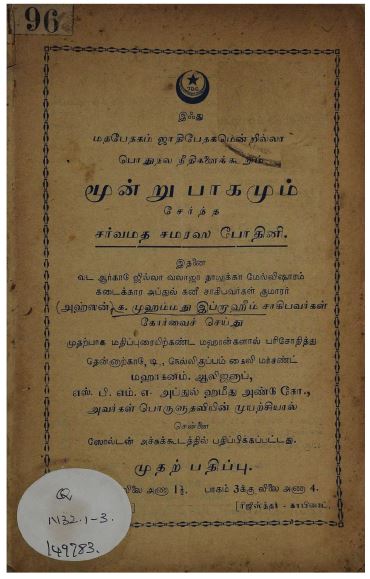 96
786
இஃது
மதபேதகம் ஜாதிபேதகமென்றில்லா
பொதுநல நீதிகளைக்கூறும்
மூன்று பாகமும்
சேர்ந்த
சர்வமத சமரஸ போதினி.
இதனை
வட ஆர்காடு ஜில்லா வலாஜா தாலுக்கா மேல்விஷாரம்
கடைக்கார அப்துல் கனீ சாகிபவர்கள் குமாரர்
(அஹ்ஸன்) க. முஹம்மது இப்ருஹீம் சாகிபவர்கள்
கோர்வைச் செய்து
முதற்பாக மதிப்புரையிற்கண்ட மஹான்களால் பரிசோதித்து
தென்னாற்காடு, டி., நெல்லிகுப்பம் கைலி மர்சண்ட்
மஹாகனம். ஆலிஜனாப்,
எஸ். பி. எம். எ. அப்துல் ஹமீது அண்டு கோ.,
அவர்கள் பொருளுதவியின் முயற்சியால்
சென்னை
ஸோல்டன் அச்சுக்கூடத்தில் பதிப்பிக்கப்பட்டது.
முதற் பதிப்பு.
விலை அணா 1½. பாகம் 3க்கு விலை அணா 4.
[ரிஜிஸ்தர் - காபிரைட்.
Q
N132.1-3.
149783.